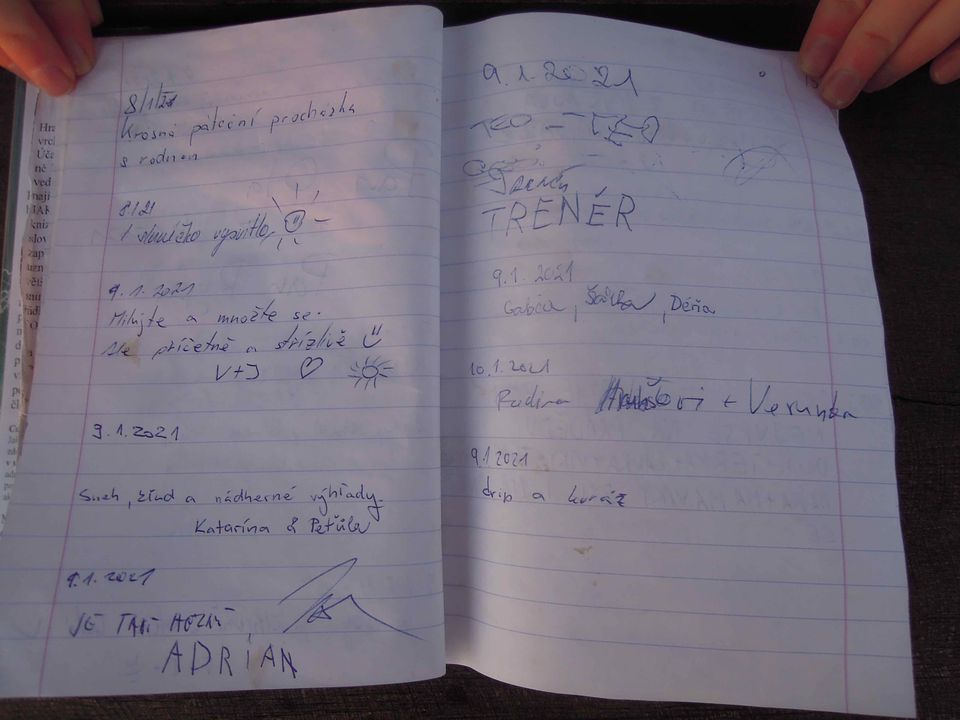 8/1/21
Krásná páteční procházka
s rodinou
8/1/21
I sluníčko vysvitlo
9.1.2021
Milujte a množte se.
Ale příčetně a střízlivě
V+J
9.1.2021
Sneh, kľud a nádherné výhľady.
Katarína & Peťula
9.1.2021
JE TADY HEZKY
ADRIAN
9.1.2021
TEO
TRENÉR
9.1.2021
Gabča, Šárka, Déňa
10.1.2021
Rodina + Verunka
9.1.2021
drip a kuráž